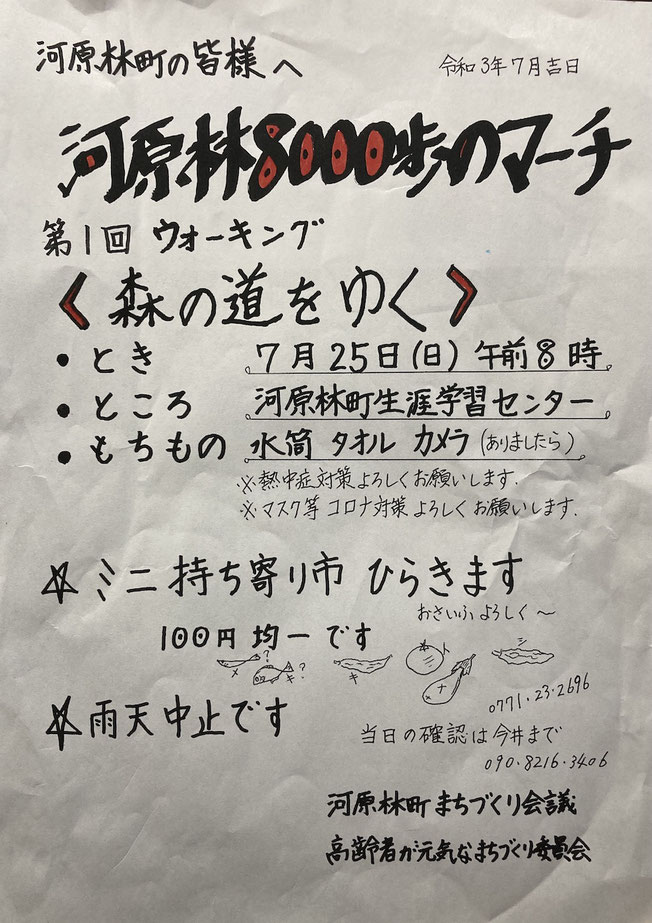 河原林町の皆様へ
令和3年7月吉日
河原林8000歩のマーチ
第1回 ウォーキング
〈森の道をゆく〉
・とき 7月25日(日) 午前8時
・ところ 河原林町生涯学習センター
・もちもの 水筒 タオル カメラ(ありましたら)
※熱中症対策よろしくお願いします.
※マスク等 コロナ対策 よろしくお願いします.
☆ミニ持ち寄り市 ひらきます
おさいふ よろしく〜
100円 均一 です
☆雨天中止です
0771.23.2696
当日の確認は今井まで
090.8216.3406
河原林町まちづくり会議
高齢者が元気なまちづくり委員会